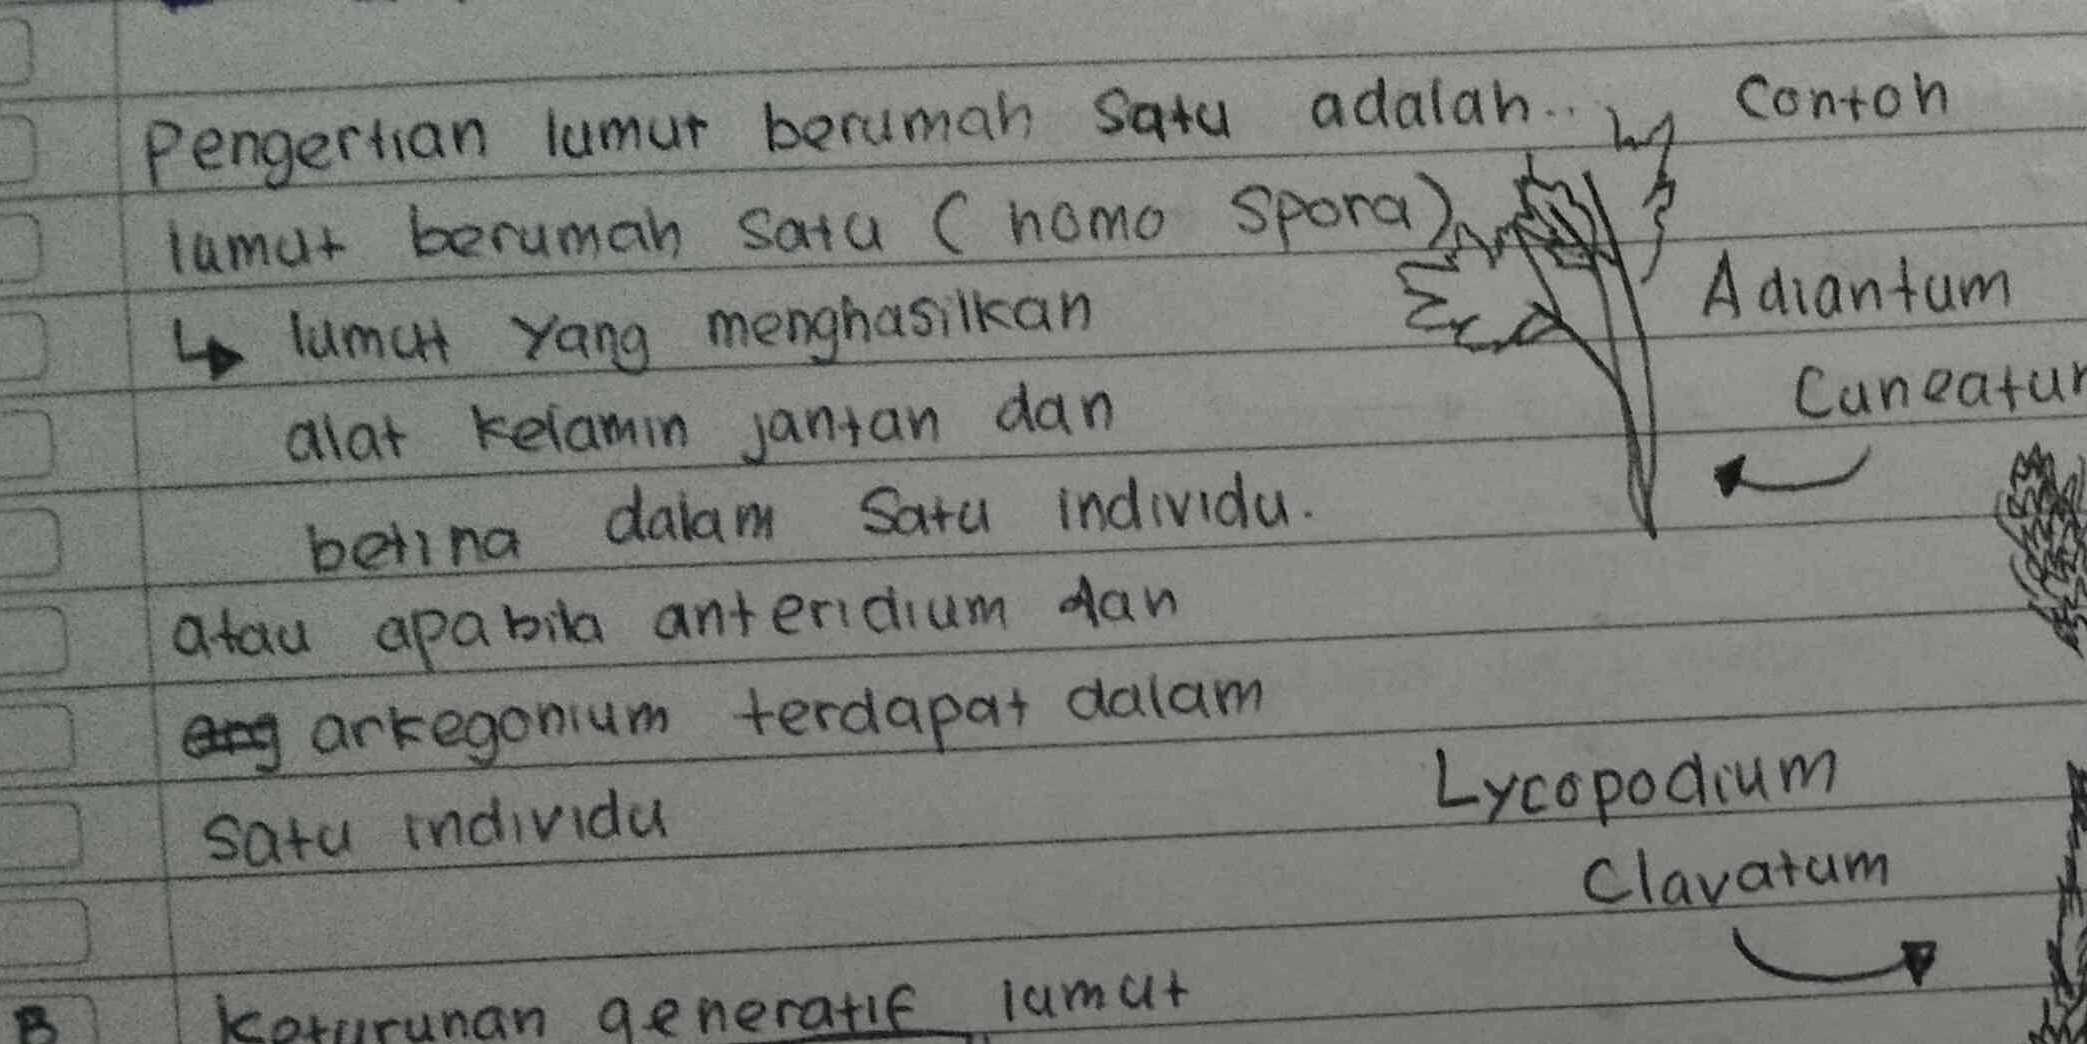 Pengertian lumut berumah satu adalah..
Contoh
lumut berumah satu (homo spora)
↳ lumut yang menghasilkan
alat kelamin jantan dan
betina dalam satu individu.
atau apabila anteridium dan
arkegonium terdapat dalam
satu individu
Adiantum
Cuneatum
Lycopodium
Clavatum
B keturunan generatif lumut